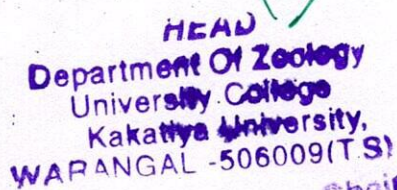 HEAD
Department Of Zoology
University College
Kakatiya University,
WARANGAL -506009(T.S)